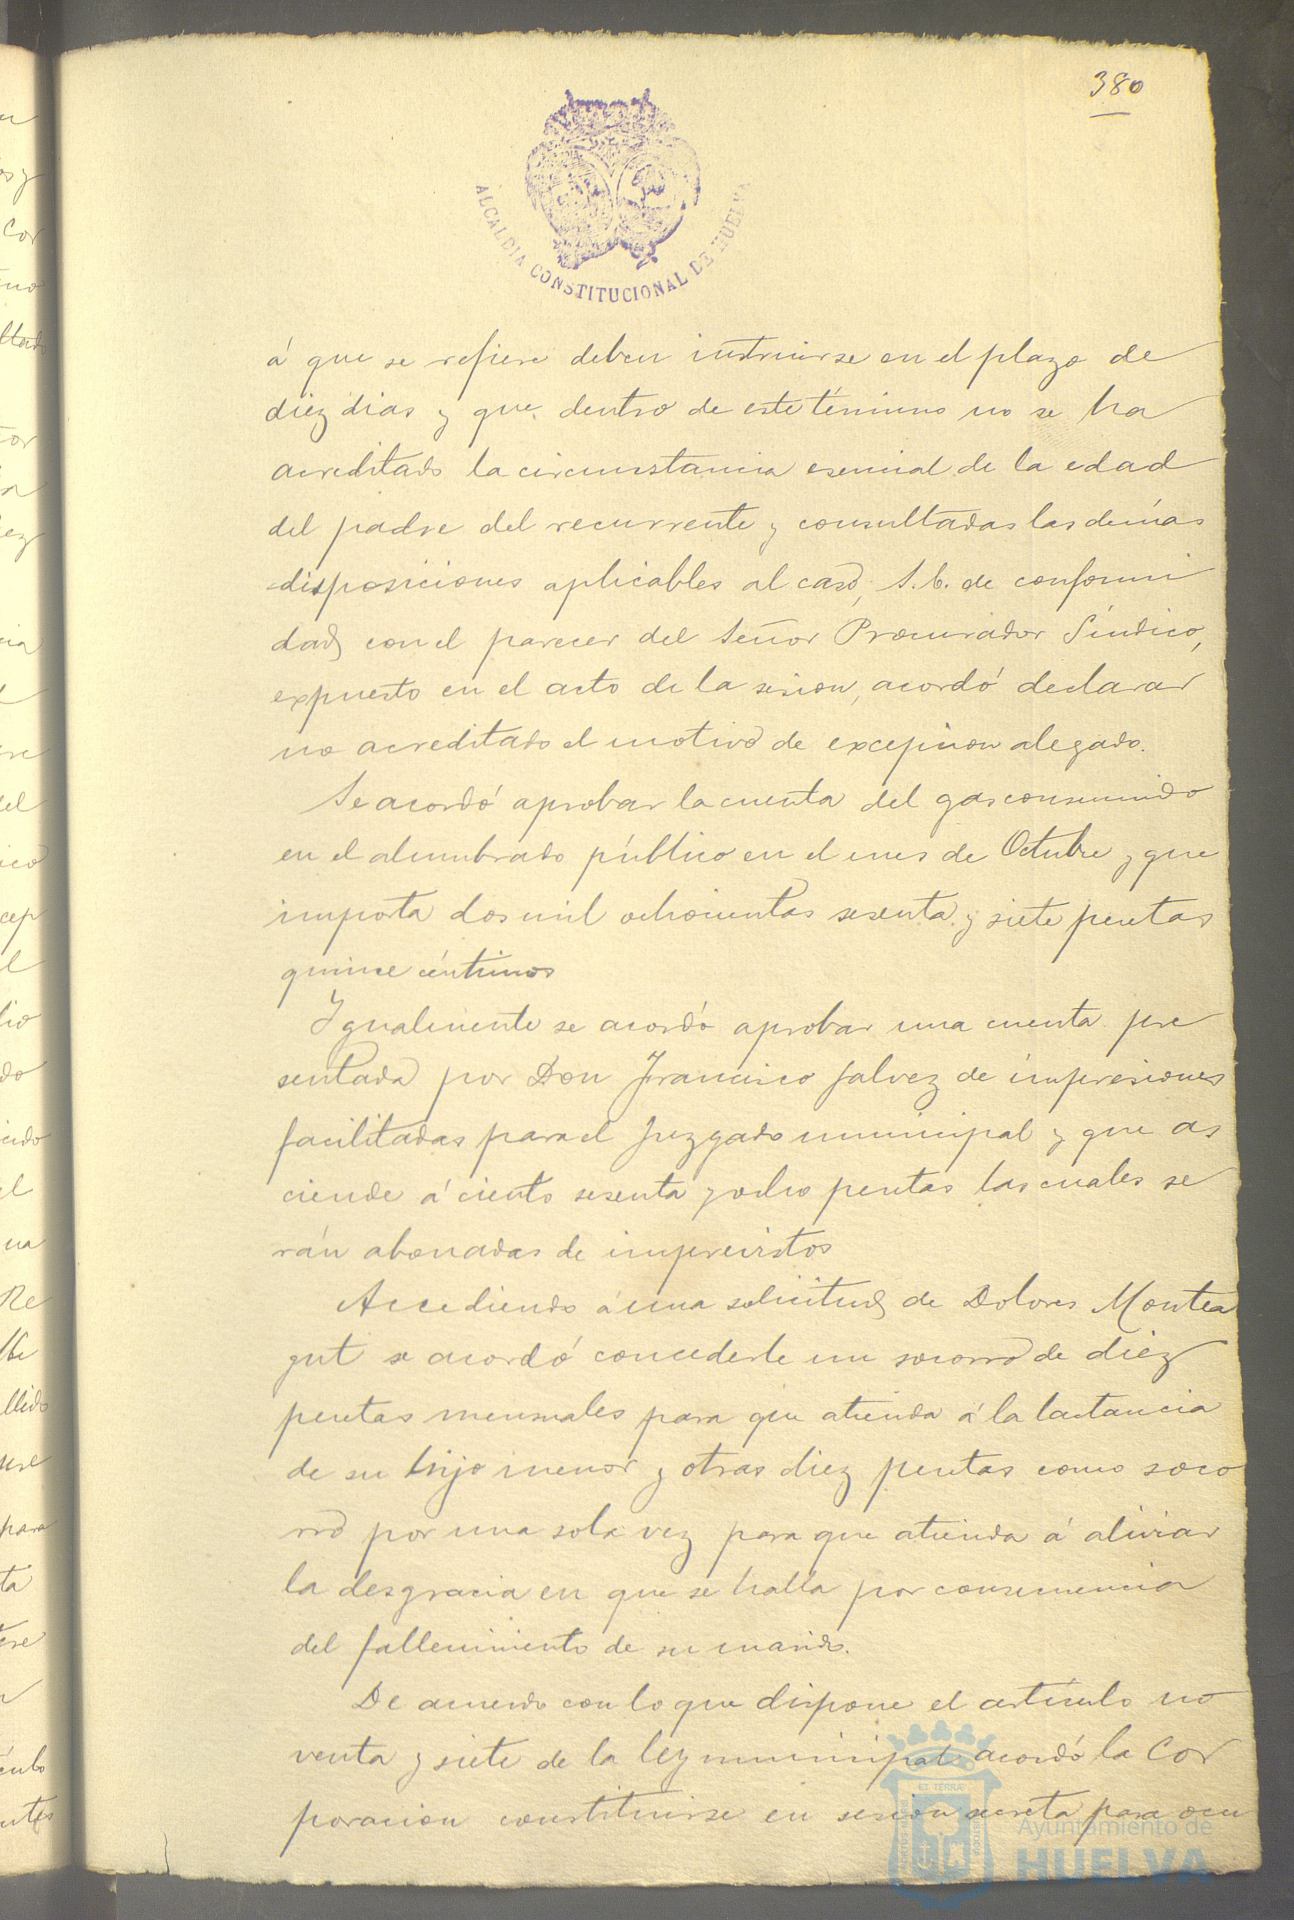 380
ALCALDIA CONSTITUCIONAL DE HUELVA
á que se refiere deben instruirse en el plazo de
diez dias y que dentro de este término no se ha
acreditado la circunstancia esencial de la edad
del padre del recurrente y consultadas las demás
disposiciones aplicables al caso, S.E. de conformi
dad con el parecer del Señor Procurador Síndico,
expuesto en el acto de la sesion, acordó declarar
no acreditado el motivo de excepcion alegado.
Se acordó aprobar la cuenta del gas consumido
en el alumbrado público en el mes de Octubre y que
importa dos mil ochocientas sesenta y siete pesetas
quince céntimos
Igualmente se acordó aprobar una cuenta pre
sentada por Don Francisco Galvez de impresiones
facilitadas para el Juzgado municipal y que as
ciende á ciento sesenta y ocho pesetas las cuales se
rán abonadas de imprevistos
Accediendo á una solicitud de Dolores Montea
gut se acordó concederle un socorro de diez
pesetas mensuales para que atienda á la lactancia
de su hijo menor y otras diez pesetas como soco
rro por una sola vez para que atienda á aliviar
la desgracia en que se halla por consecuencia
del fallecimiento de su marido.
De acuerdo con lo que dispone el artículo no
venta y siete de la ley municipal acordó la Cor
poracion constituirse en sesion secreta para ocu
Ayuntamiento de
HUELVA